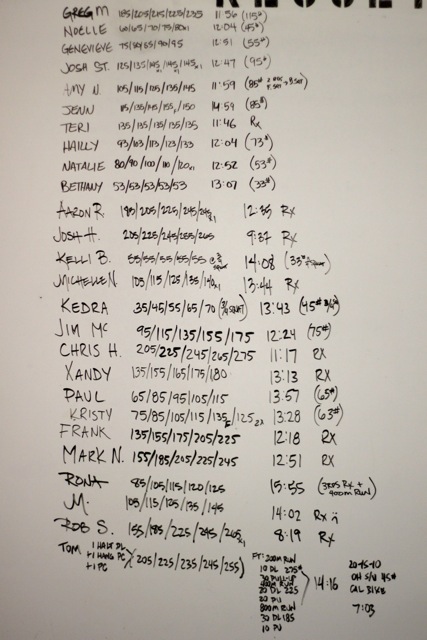 GREG M 185/205/215/225/235 11:56 (115#)
NOELLE 60/65/70/75/80x1 12:04 (45#)
GENEVIEVE 12:51 (55#)
JOSH ST. 12:47 (95#)
AMY N. 105/115/125/135/145 11:59 (85#
JENN 14:59 (85#)
TERI 135/135/135/135/135 11:46 Rx
HAILLY 93/103/113/123/133 12:04 (73#)
NATALIE 80/90/100/110/120x1 12:52 (53#)
BETHANY 53/53/53/53/53 13:07 (33#)
AARON R. 185/205/225/245/245x1 12:35 Rx
JOSH H. 205/225/245/255/265 9:37 Rx
KELLI B. 55/55/55/55/55 14:08
MICHELLE N. 105/115/125/135/140x1 13:44 Rx
KEDRA 35/45/55/65/70 (3/4 SQUAT) 13:43
JIM MC 95/115/135/155/175 12:24 (75#)
CHRIS H. 205/225/245/265/275 11:17 RX
XANDY 135/155/165/175/180 13:13 RX
PAUL 65/85/95/105/115 13:57 (65#)
KRISTY 75/85/105/115/135/125 2x 13:28 (63#)
FRANK 135/155/175/205/225 12:18 RX
MARK N. 155/185/205/225/245 12:51 RX
RONA 85/105/115/120/125 15:55 (3RDS Rx + 400m RUN)
M. 105/115/125/135/145 14:02 Rx
ROB S. 155/185/225/245/265x1 8:19 Rx
TOM 1 HALT DL
+1 HANG PC
+1 PC
205/225/235/245/255)
FT: 200m RUN
10 DL 275#
30 PULL-UP
400m RUN
20 DL 225
20 PU
800m RUN
30 DL 185
10 PU
14:16
OH S/U 45#
CAL BIKE
7:03